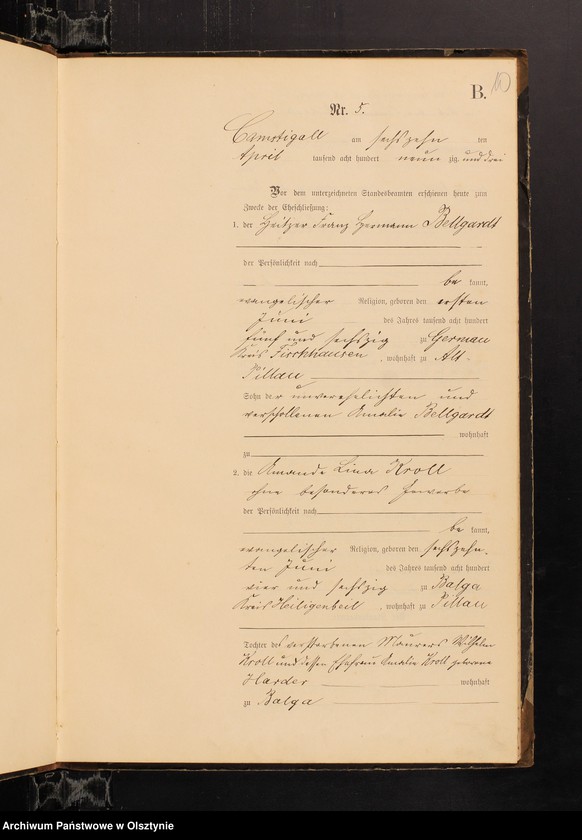 B.
10
Nr. 5.
Camstigall am sechszehn ten
April tausend acht hundert neun zig und drei
Vor dem unterzeichneten Standesbeamten erschienen heute zum
Zwecke der Eheschließung:
1. der Heitzer Franz Hermann Bellgardt
der Persönlichkeit nach
be kannt,
evangelischer Religion, geboren den ersten
Juni des Jahres tausend acht hundert
fünf und sechszig zu Germau
Kreis Fischhausen, wohnhaft zu Alt-
Pillau
Sohn der unverehelichten und
verschollenen Amalie Bellgardt
wohnhaft
zu
2. die Amande Lina Kroll
ohne besonderes Gewerbe
der Persönlichkeit nach
be kannt,
evangelischer Religion, geboren den sechszehn-
ten Juni des Jahres tausend acht hundert
vier und sechszig zu Balga
Kreis Heiligenbeil, wohnhaft zu Pillau
Tochter des verstorbenen Maurers Wilhelm
Kroll und dessen Ehefrau Amalie Kroll geborene
Harder wohnhaft
zu Balga
Archiwum Państwowe w Olsztynie